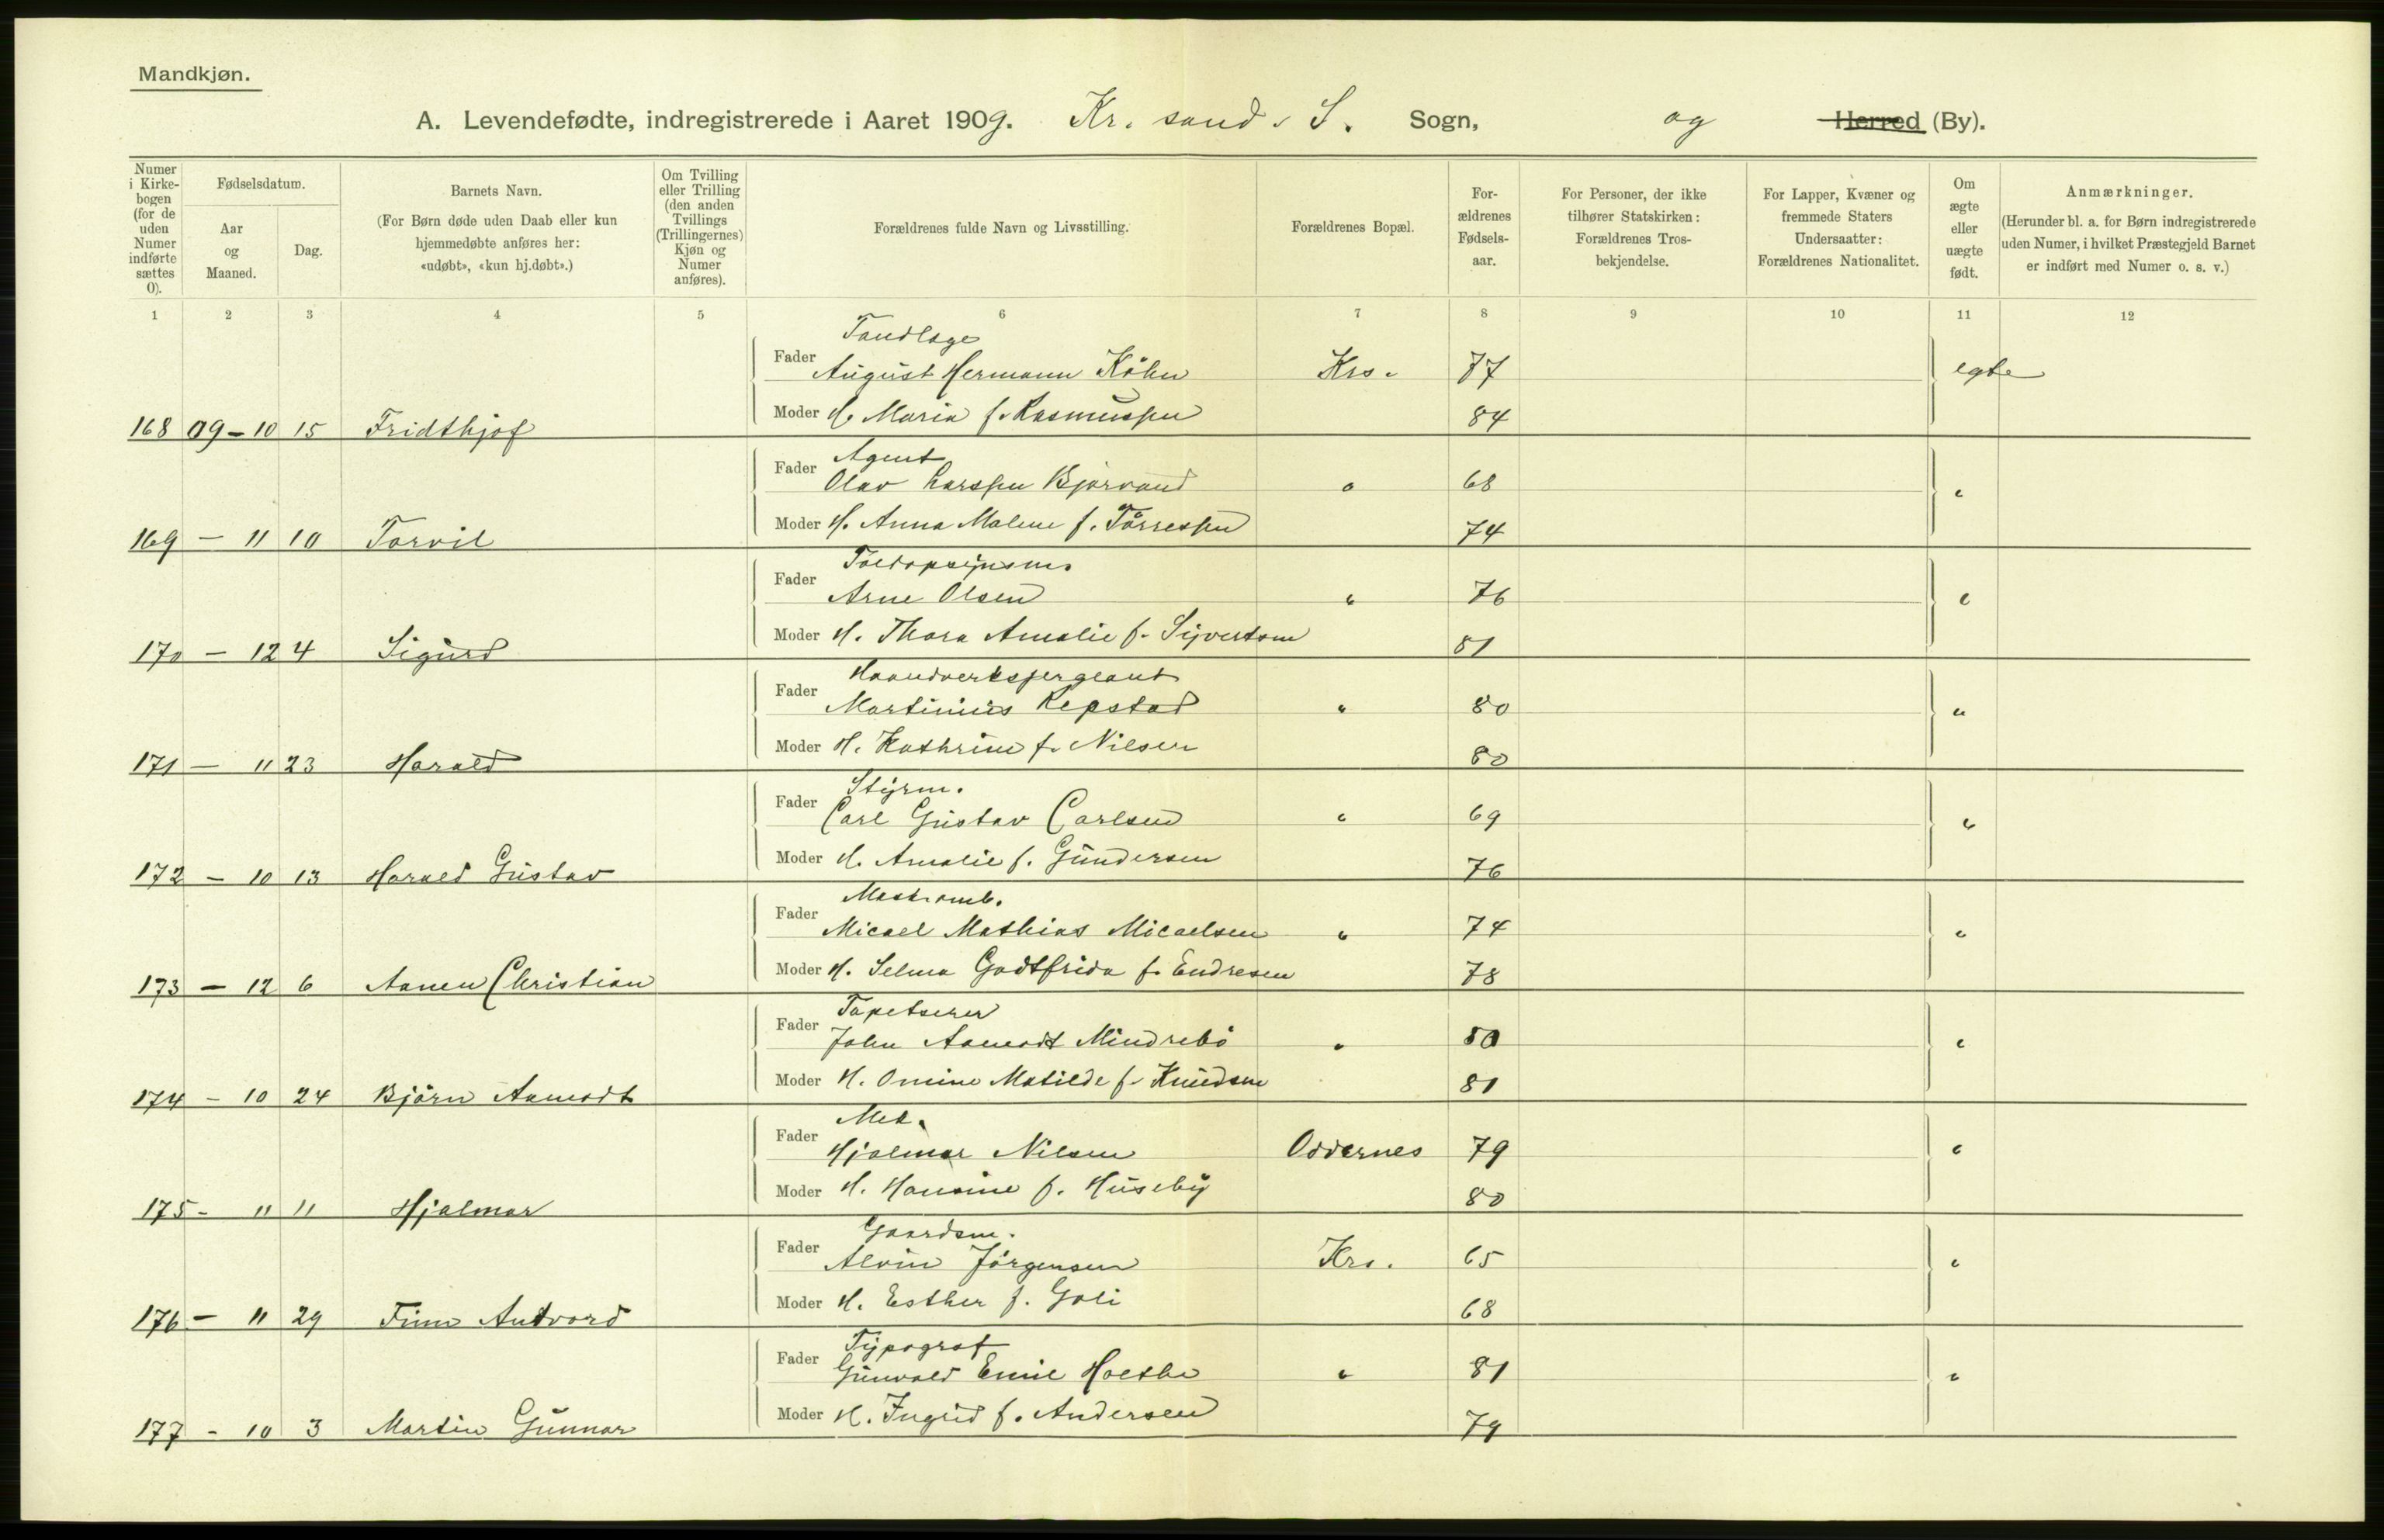 Mandkjøn.
A. Levendefødte, indregistrerede i Aaret 1909. Kr. sand. S. Sogn, og Herred (By).
Numer i Kirke- bogen (for de uden Numer indførte sættes 0).
Fødselsdatum.
Aar og Maaned.
Dag.
Barnets Navn.
(For Børn døde uden Daab eller kun
hjemmedøbte anføres her:
«udøbt», «kun hj.døbt».)
Om Tvilling eller Trilling (den anden Tvillings (Trillingernes) Kjøn og Numer anføres).
Forældrenes fulde Navn og Livsstilling.
Forældrenes Bopæl.
For- ældrenes Fødsels- aar.
For Personer, der ikke
tilhører Statskirken:
Forældrenes Tros-
bekjendelse.
For Lapper, Kvæner og
fremmede Staters
Undersaatter:
Forældrenes Nationalitet.
Om ægte eller uægte født.
Anmærkninger.
(Herunder bl. a. for Børn indregistrerede
uden Numer, i hvilket Præstegjeld Barnet
er indført med Numer o. s. v.)
1 2 3 4 5 6 7 8 9 10 11 12
Tandlæge
Fader August Hermann Köhn Krs. 77 egte
Moder H. Maria f. Rasmussen 84
168 09-10 15 Fridthjof
Agent
Fader Olav Larssen Bjorvand " 68 "
Moder H. Anna Malene f. Tørressen 74
169 - 11 10 Torvil
Toldopsynsm.
Fader Arne Olsen " 76 "
Moder H. Thora Amalie f. Syvertsen 81
170 - 12 4 Sigurd
Haandverkssergeant
Fader Martinius Repstad " 80 "
Moder H. Kathrine f. Nilsen 80
171 - " 23 Harald
Styrm.
Fader Carl Gustav Carlsen " 69 "
Moder H. Amalie f. Gundersen 76
172 - 10 13 Harald Gustav
Fader Micael Mathias Micaelsen " 74 "
Moder H. Selma Godtfrida f. Endresen 78
173 - 12 6 Aanen Christian
Tapetserer
Fader John Aamodt Mindrebø " 80 "
Moder H. Omine Matilde f. Knudsen 81
174 - 10 24 Bjørn Aamodt
Mek.
Fader Hjalmar Nilsen Oddernes 79 "
Moder H. Hansine f. Huseby 80
175 - " 11 Hjalmar
Gaardsm.
Fader Alvin Jørgensen Krs. 65 "
Moder H. Esther f. Goli 68
176 - 11 29 Finn Antvord
Typograf
Fader Gunvald Emil Holthe " 81 "
Moder H. Ingrid f. Andersen 79
177 - 10 3 Martin Gunnar